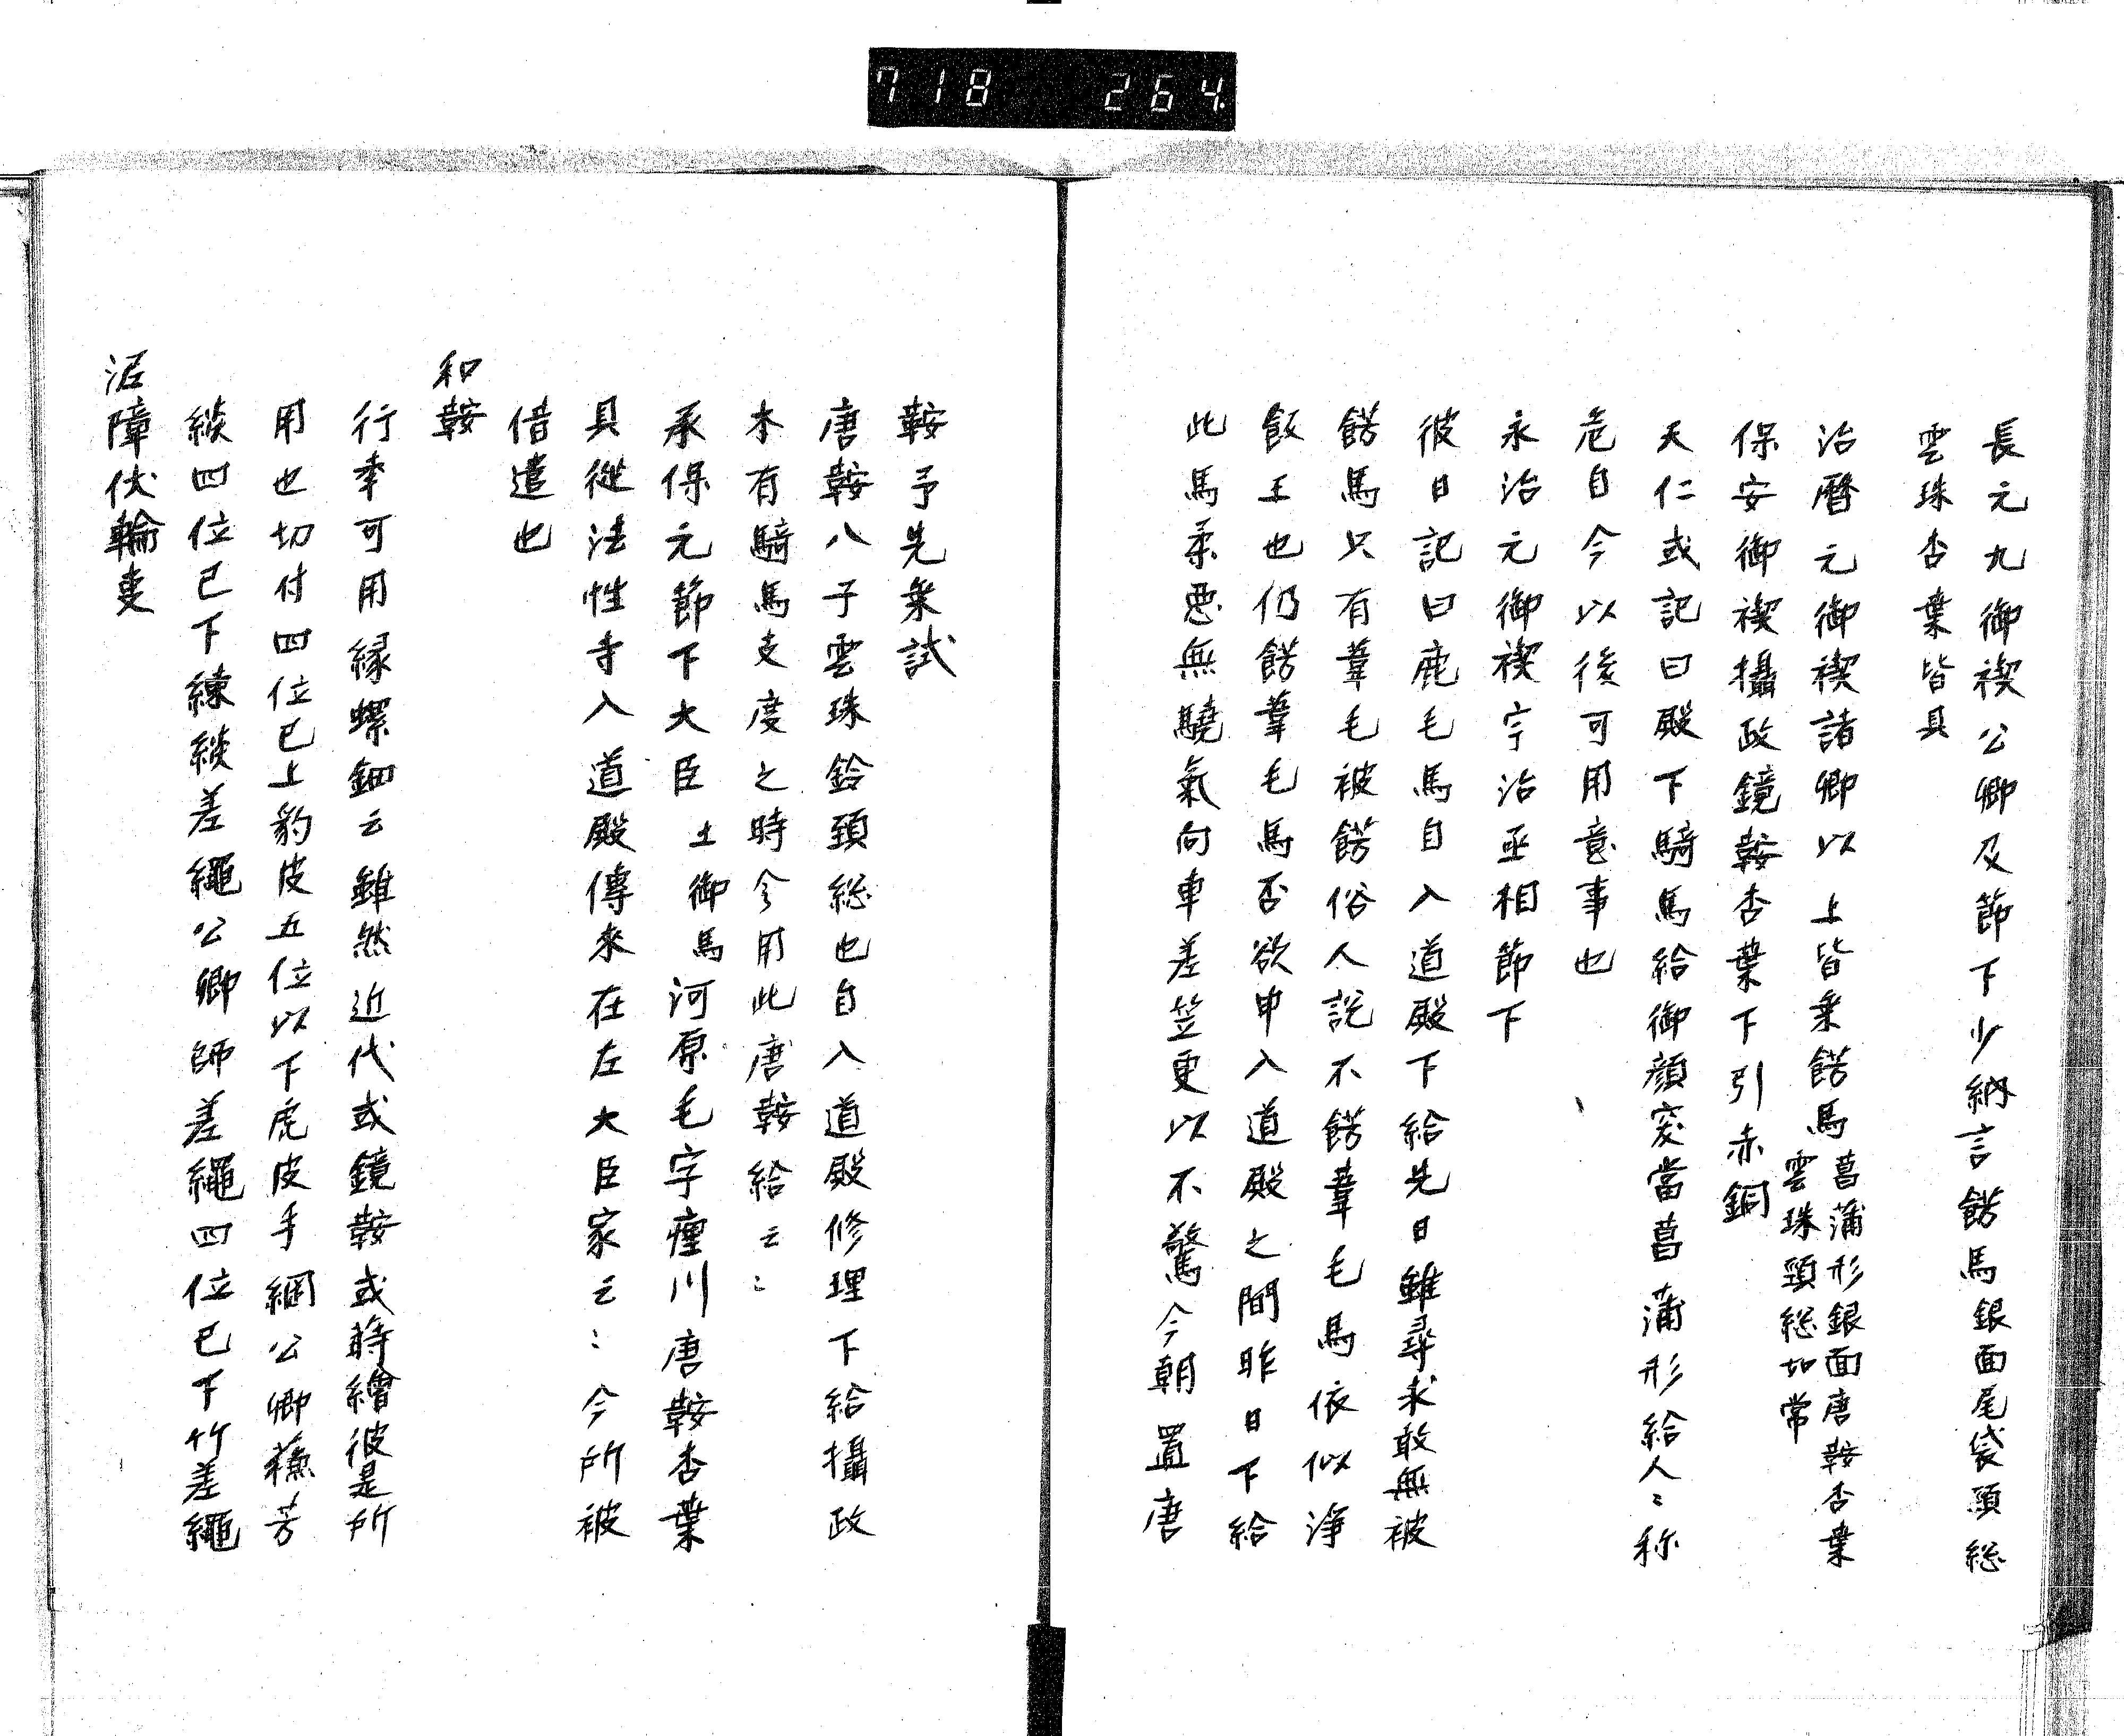 718 264
長元九御禊公卿及節下少納言餝馬銀面尾袋頸総
雲珠杏葉皆具
治暦元御禊諸卿以上皆乗餝馬菖蒲形銀面唐鞍杏葉
雲珠頸総如常
保安御禊攝政鏡鞍杏葉下引赤銅
天仁或記曰殿下騎馬給御顔突當菖蒲形給人〻称
危自今以後可用意事也
永治元御禊宇治亟相節下
彼日記曰鹿毛馬自入道殿下給先日雖尋求敢無被
餝馬只有葦毛被餝俗人説不餝葦毛馬依似浄
飯王也仍餝葦毛馬否欲申入道殿之間昨日下給
此馬柔悪無驍氣向車差笠更以不驚今朝置唐
鞍予先乗試
唐鞍八子雲珠鈴頸総也自入道殿修理下給攝政
本有騎馬支度之時令用此唐鞍給云〻
承保元節下大臣土御馬河原毛字瘻川唐鞍杏葉
具從法性寺入道殿傳來在左大臣家云〻今所被
借遣也
和鞍
行幸可用縁螺鈿云雖然近代或鏡鞍或蒔繪彼是所
用也切付四位已上豹皮五位以下虎皮手綱公卿蘓芳
緂四位已下練緂差繩公卿師差繩四位已下竹差繩
泥障伏輪事